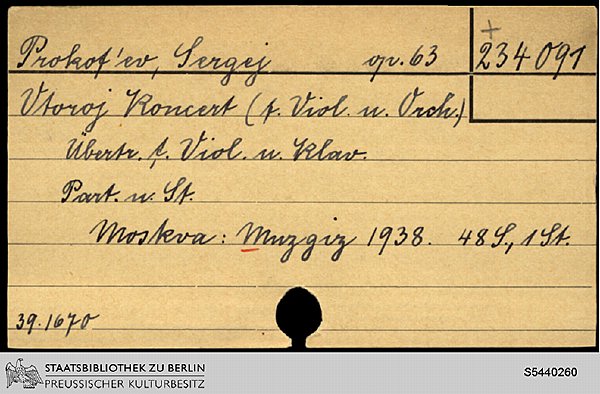 +
Prokof'ev, Sergej op. 63 234091
Vtoroj Koncert (f. Viol. u. Orch.)
Übertr. f. Viol. u. Klav.
Part. u. St.
Moskva: Muzgiz 1938. 48 S., 1 St.
39.1670
STAATSBIBLIOTHEK ZU BERLIN
PREUSSISCHER KULTURBESITZ
S5440260